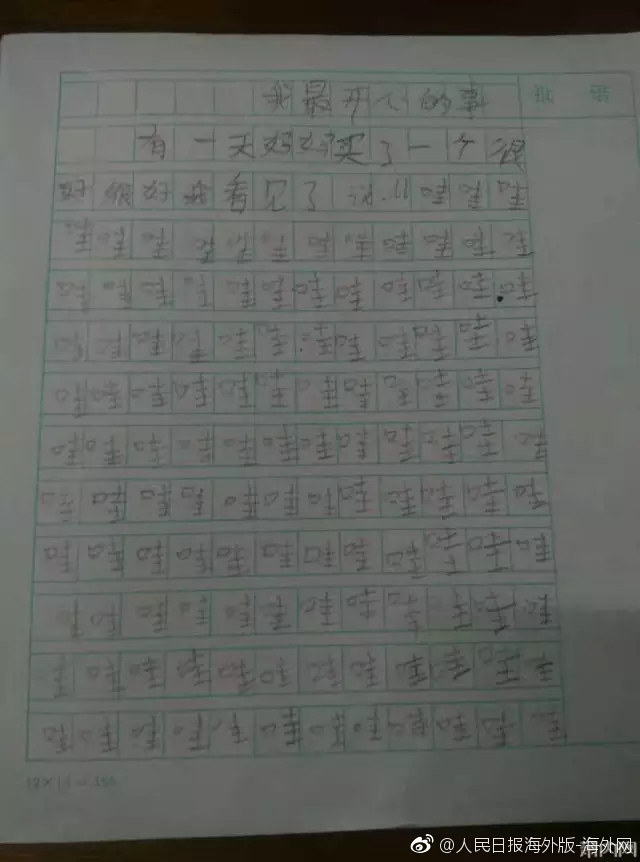 我最开心的事
批语
有一天妈妈买了一个很
好很好 看见了说!!哇哇哇
哇哇哇哇哇哇哇哇哇哇哇哇
哇哇哇哇哇哇哇哇哇哇哇哇
哇哇哇哇哇哇哇哇哇哇哇哇
哇哇哇哇哇哇哇哇哇哇哇哇
哇哇哇哇哇哇哇哇哇哇哇哇
哇哇哇哇哇哇哇哇哇哇哇哇
哇哇哇哇哇哇哇哇哇哇哇哇
哇哇哇哇哇哇哇哇哇哇哇哇
哇哇哇哇哇哇哇哇哇哇哇哇
哇哇哇哇哇哇哇哇哇哇哇哇
@人民日报海外版-海外网